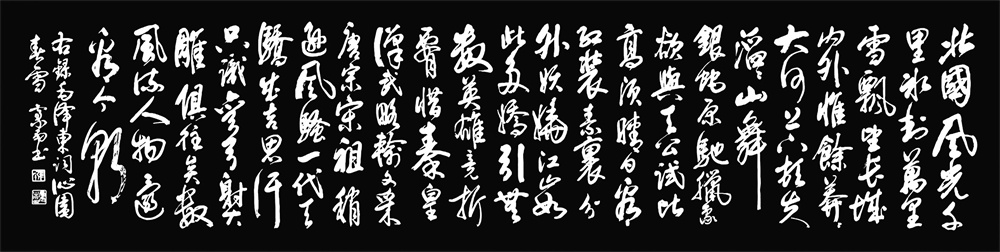 北國風光千
里冰封萬里
雪飄望長城
內外惟餘莽莽
大河上下頓失
滔滔山舞
銀蛇原馳蠟象
欲與天公試比
高須晴日看
紅裝素裹分
外妖嬈江山如
此多嬌引無
數英雄競折
腰惜秦皇
漢武略輸文采
唐宗宋祖稍
遜風騷一代天
驕成吉思汗
只識彎弓射大
雕俱往矣數
風流人物還
看今朝
右錄毛澤東詞沁園
春雪